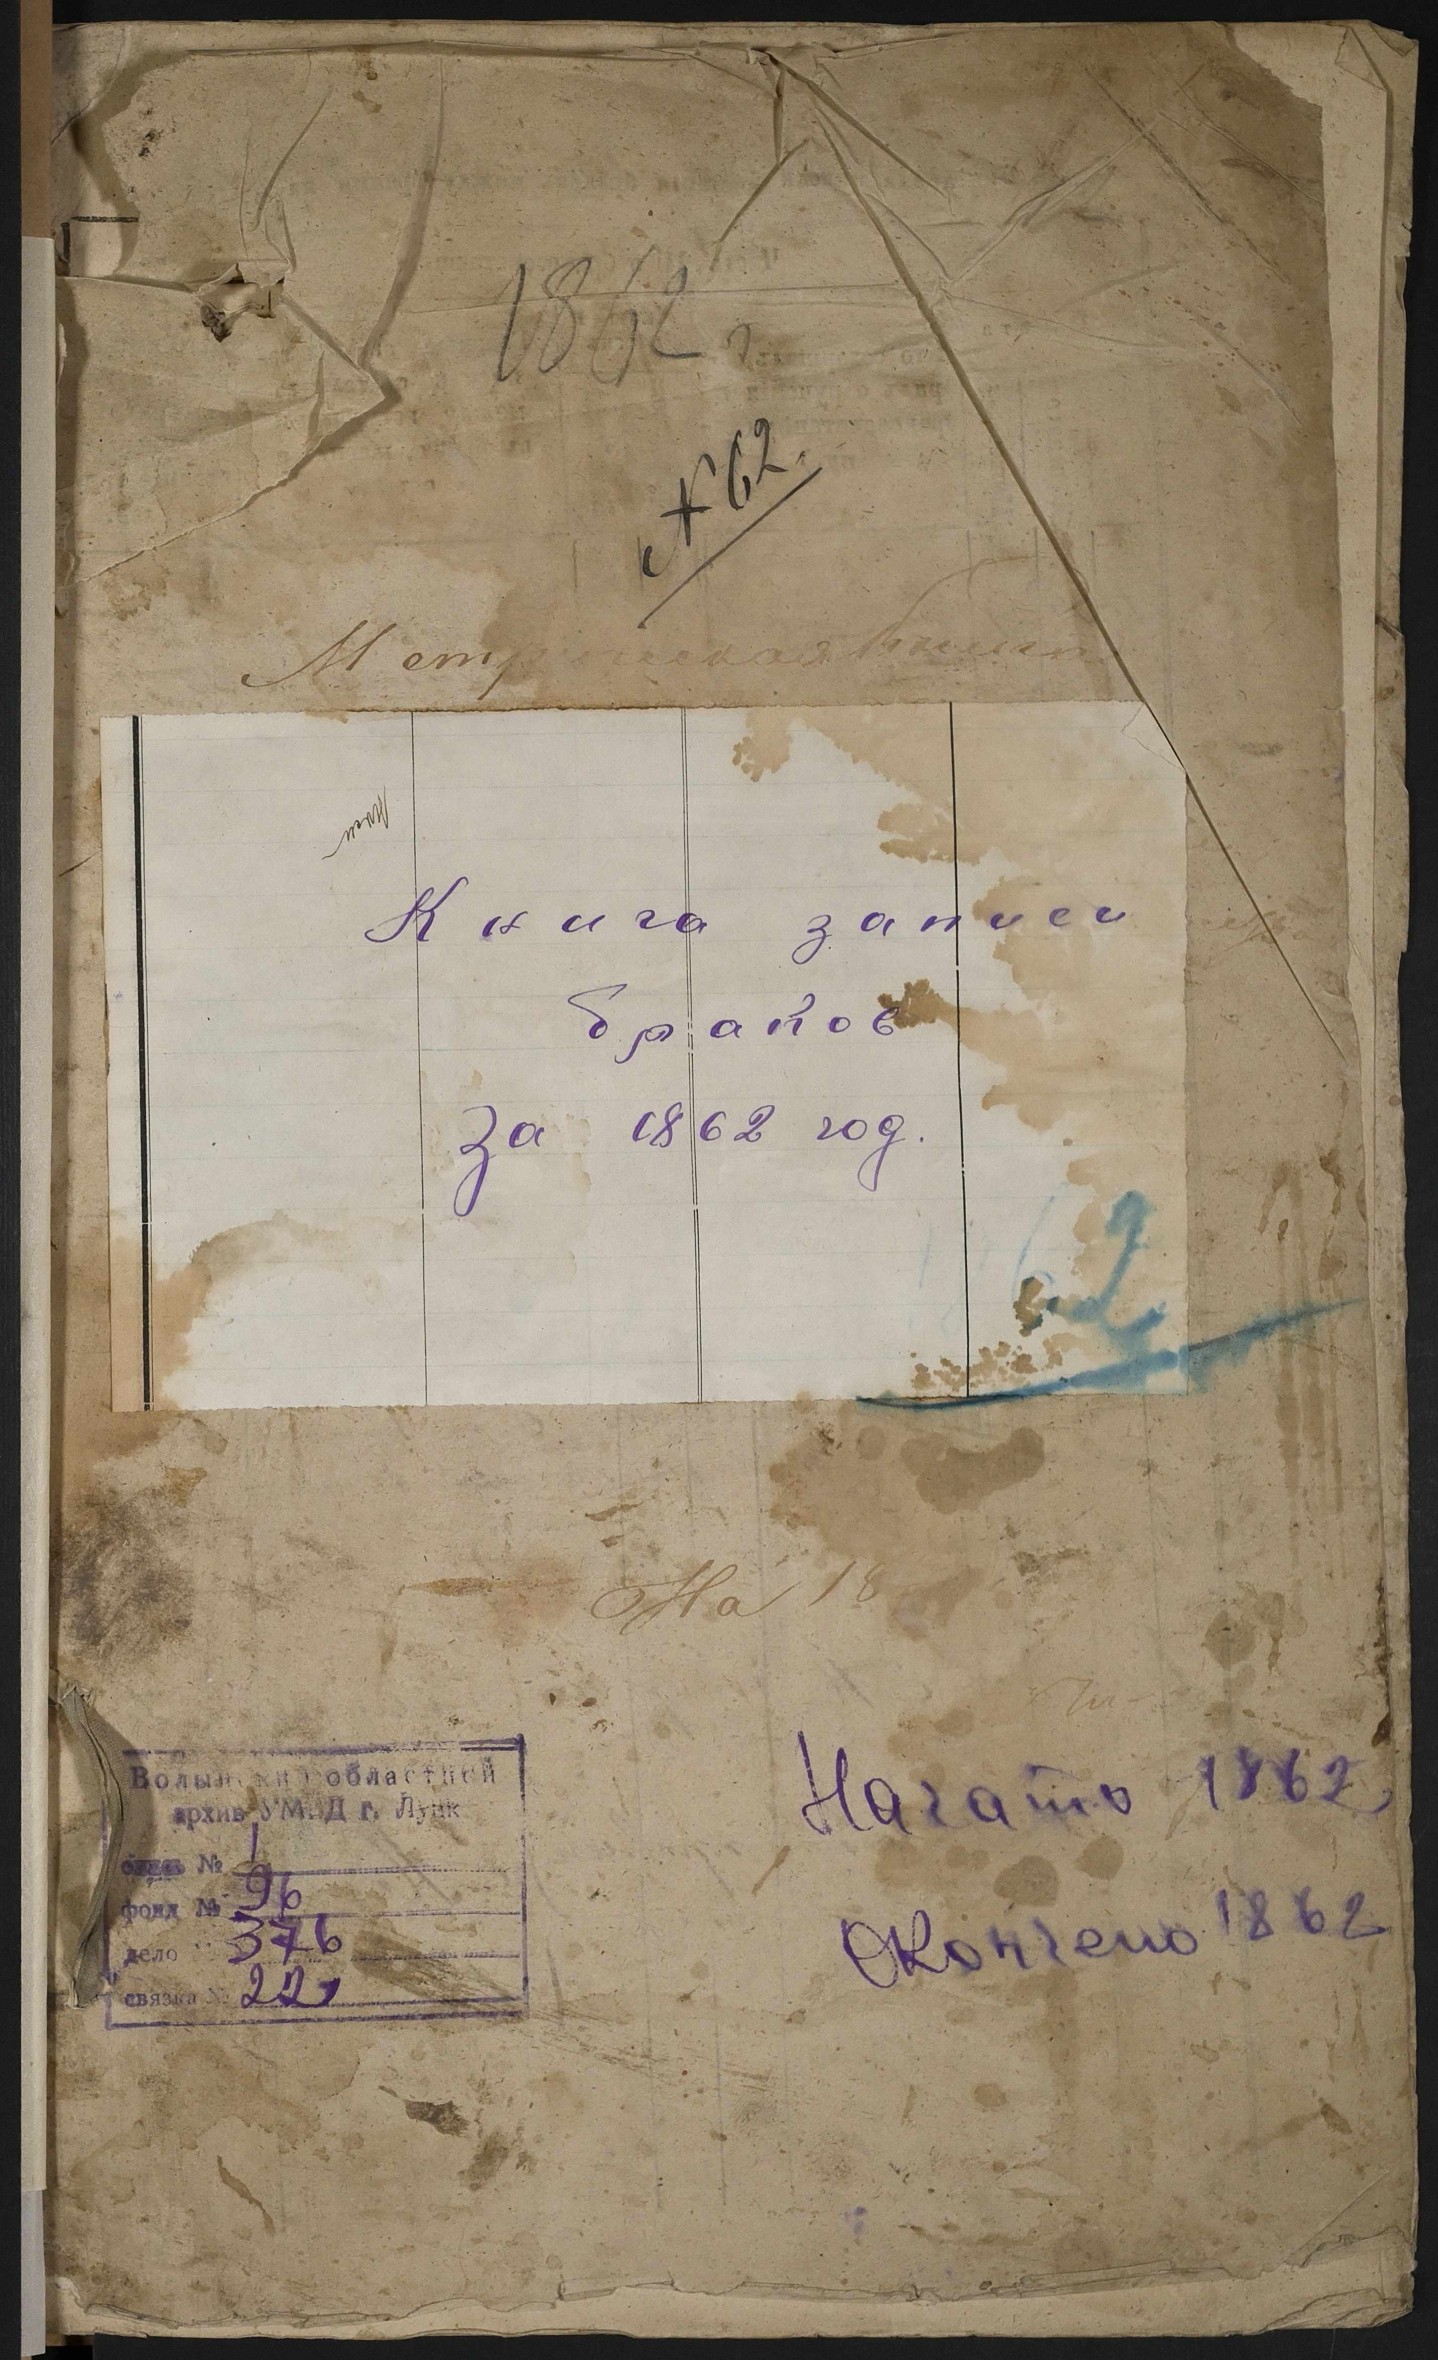 1862 г
№ 62.
Метрическая Книга
Книга записи
браков
за 1862 год.
1862
На 18
Волынский областной
архив УМВД г. Луцк
опись № 1
фонд № 96
дело 376
связка № 22
Начато 1862
Окончено 1862